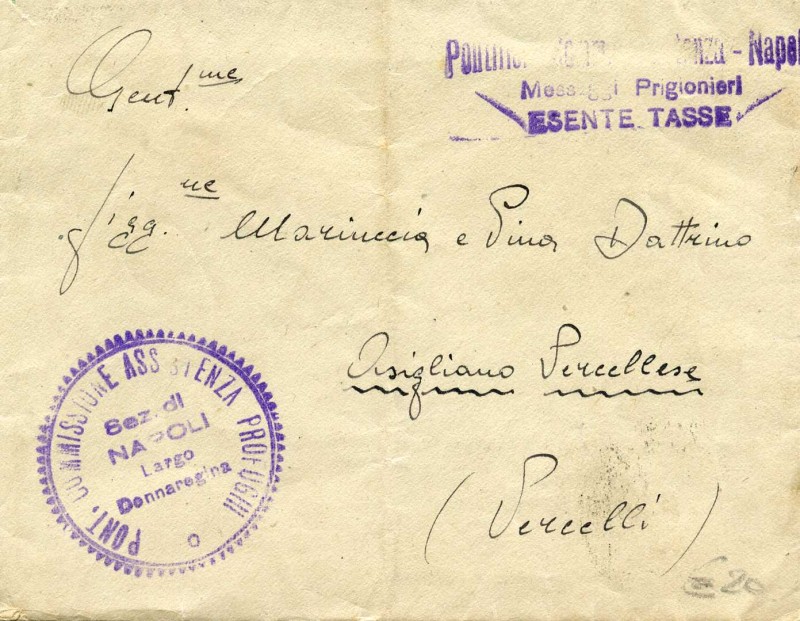 Gent.me
Pontific - tenza - Napol
Messaggi Prigionieri
ESENTE TASSE
Sigg.ne Mariuccia e Pina Dattrino
Asigliano Vercellese
(Vercelli)
PONT. COMMISSIONE ASSISTENZA PROFUGHI
Sez. di
NAPOLI
Largo
Donnaregina
€ 20